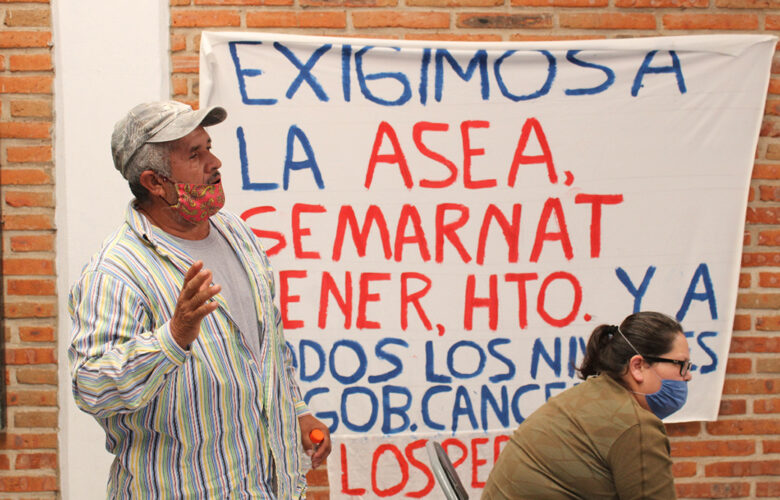 EXIGIMOS A
LA ASEA,
SEMARNAT
ENER, HTO. Y A
ODOS LOS NI
GOB. CANCE
LOS